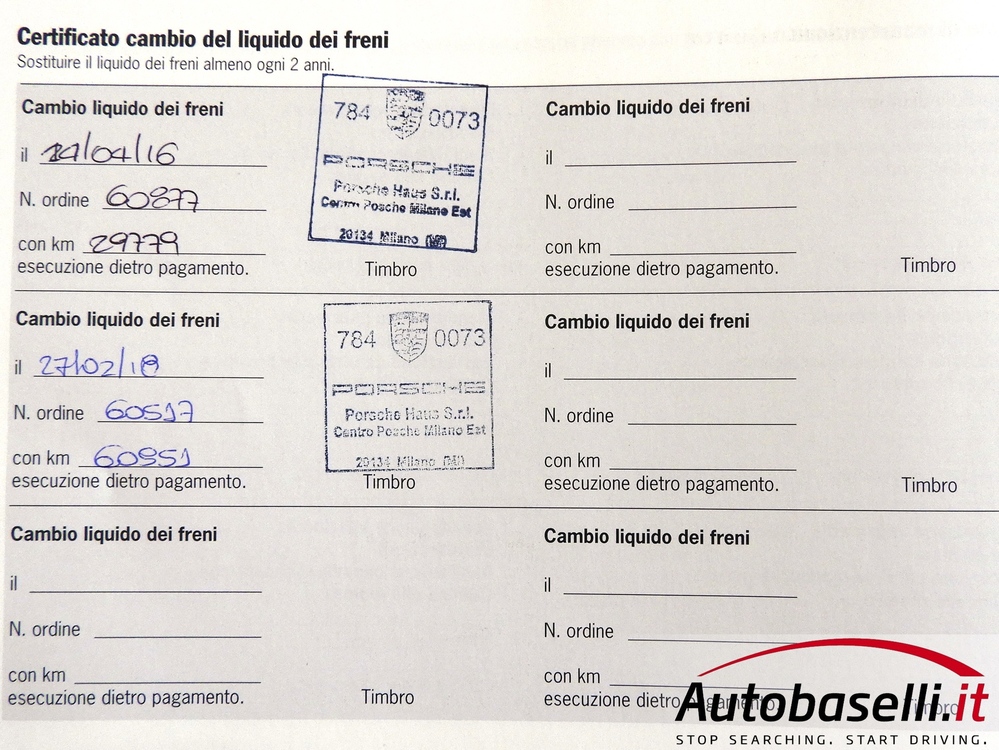 Certificato cambio del liquido dei freni
Sostituire il liquido dei freni almeno ogni 2 anni.
Cambio liquido dei freni
il 14/04/16
N. ordine 60877
con km 29779
esecuzione dietro pagamento.
784 0073
PORSCHE
Porsche Haus S.r.l.
Centro Posche Milano Est
20134 Milano (MI)
Timbro
Cambio liquido dei freni
il
N. ordine
con km
esecuzione dietro pagamento.
Timbro
Cambio liquido dei freni
il 27/02/18
N. ordine 60517
con km 60951
esecuzione dietro pagamento.
784 0073
PORSCHE
Porsche Haus S.r.l.
Centro Posche Milano Est
20134 Milano (MI)
Timbro
Cambio liquido dei freni
il
N. ordine
con km
esecuzione dietro pagamento.
Timbro
Cambio liquido dei freni
il
N. ordine
con km
esecuzione dietro pagamento.
Timbro
Cambio liquido dei freni
il
N. ordine
con km
esecuzione dietro pagamento.
Timbro
Autobaselli.it
STOP SEARCHING. START DRIVING.